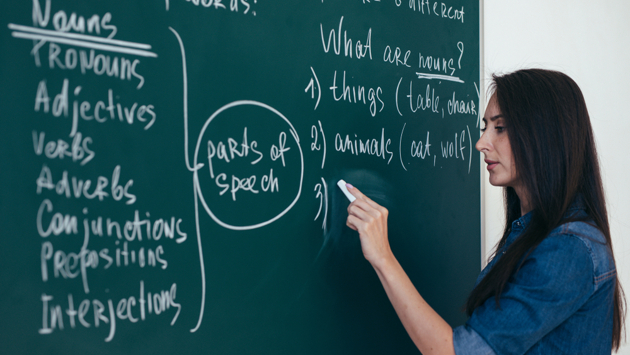 words!
different
Nouns
Pronouns
Adjectives
Verbs
Adverbs
Conjunctions
Prepositions
Interjections
parts of
speech
What are nouns?
1) things (table, chair)
2) animals (cat, wolf)
3)